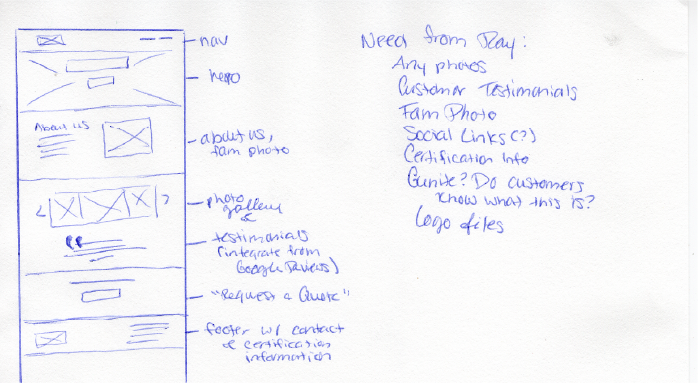 nav
hero
About us
about us,
fam photo
photo
gallery
&
testimonials
(integrate from
Google Reviews)
"Request a Quote"
footer w/ contact
& certification
information
Need from Ray:
Any photos
Customer Testimonials
Fam Photo
Social Links (?)
Certification Info
Gunite? Do customers
know what this is?
Logo files